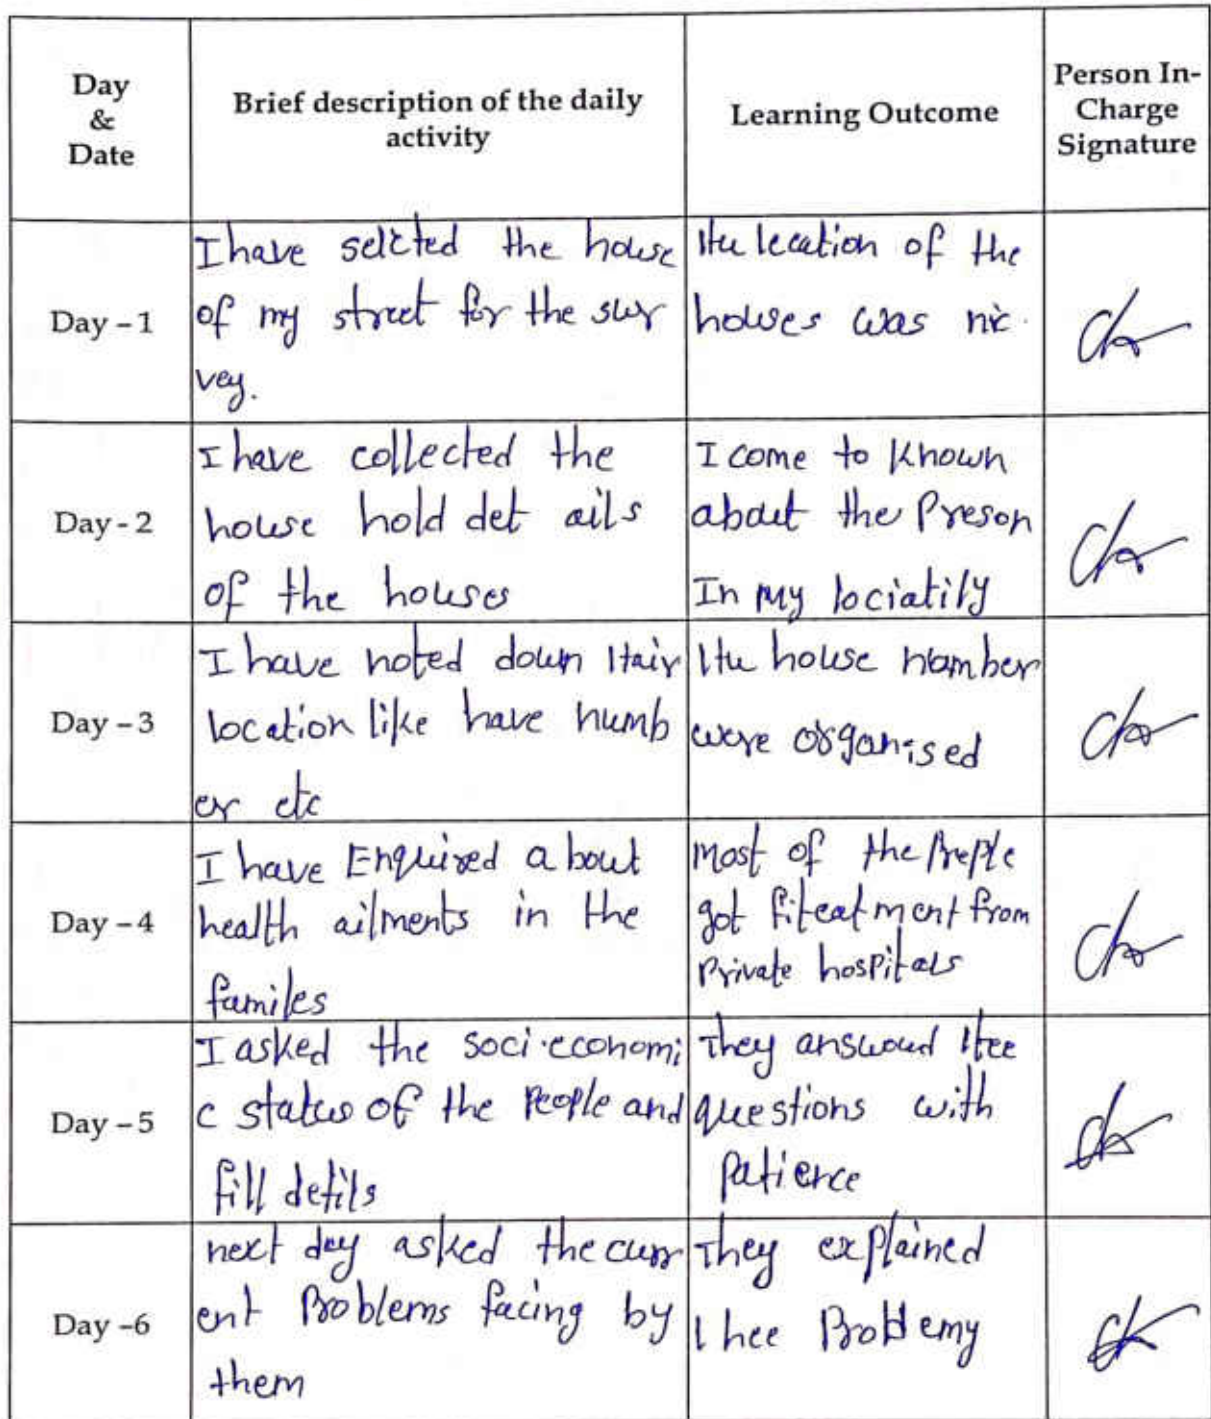 Day
&
Date
Brief description of the daily
activity
Learning Outcome
Person In-
Charge
Signature
Day – 1
I have selcted the house
of my street for the sur
vey.
lecation of the
houses was nic.
Day - 2
I have collected the
house hold det ails
of the houses
I come to known
about the Preson
In my lociatily
Day – 3
I have noted down
location like have numb
er etc
house number
were organised
Day – 4
I have Enquired a bout
health ailments in the
familes
most of the
got from
Private hospitals
Day – 5
I asked the soci-economi
c status of the People and
fill detils
They
questions with
patience
Day –6
next day asked the curr
ent Problems facing by
them
They explained